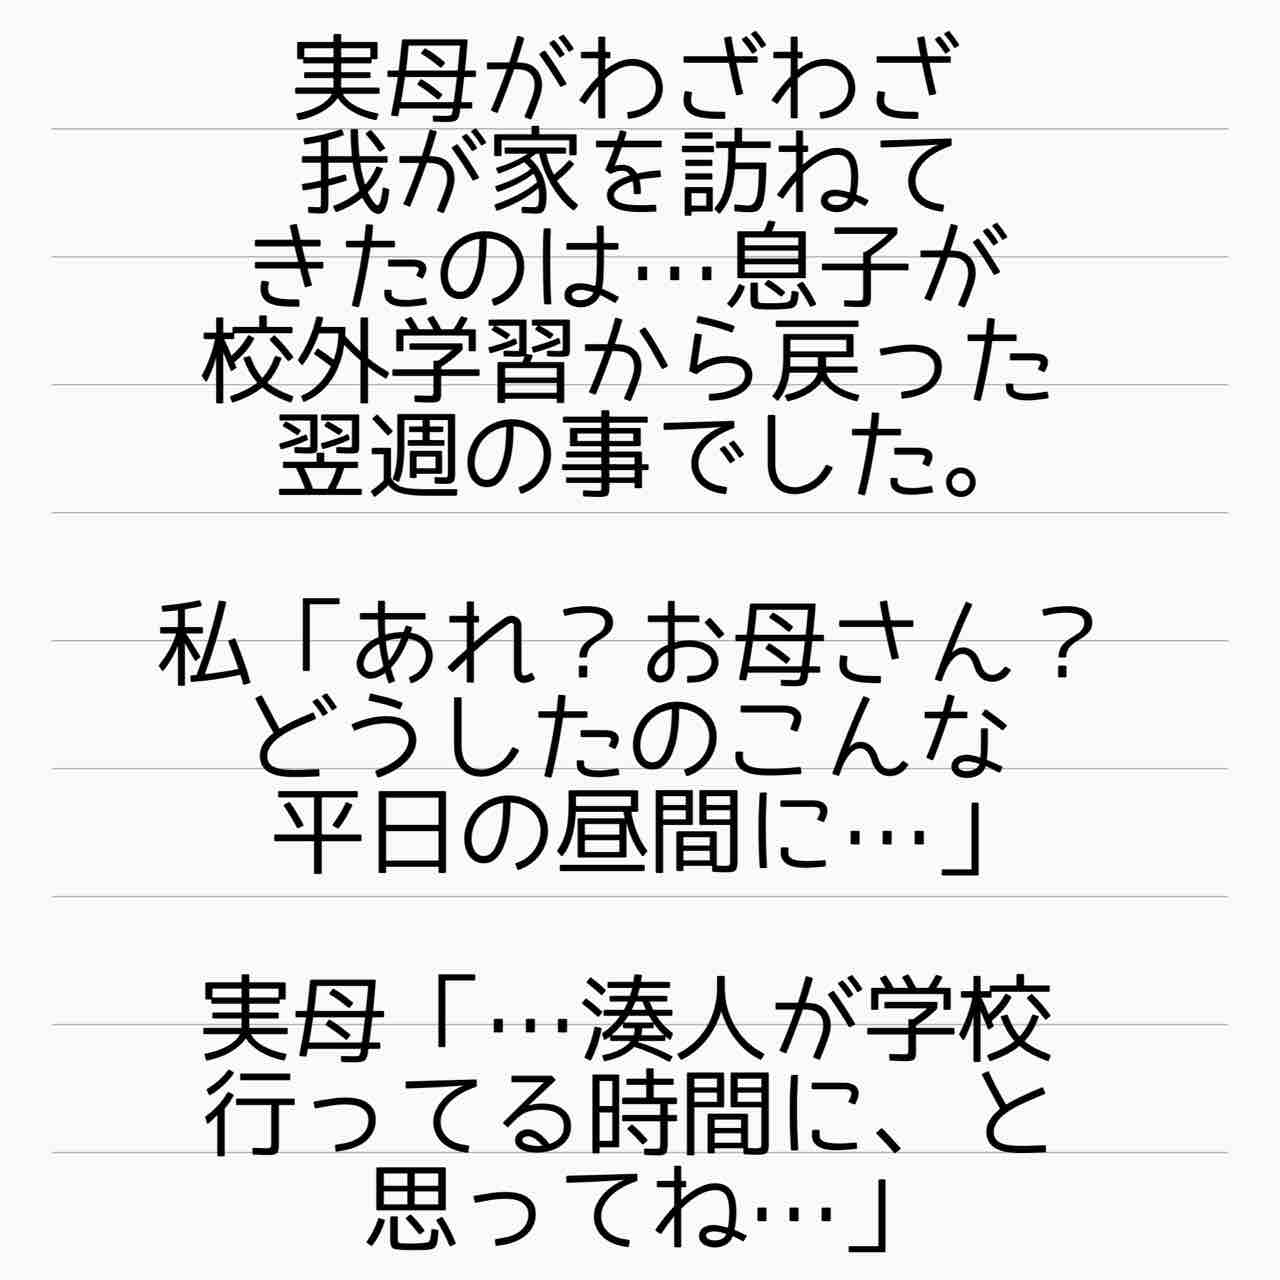 実母がわざわざ
我が家を訪ねて
きたのは…息子が
校外学習から戻った
翌週の事でした。
私「あれ？お母さん？
どうしたのこんな
平日の昼間に…」
実母「…湊人が学校
行ってる時間に、と
思ってね…」